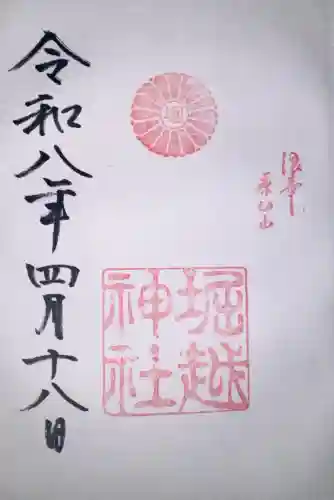 堀越
神社
令和八年四月十八日